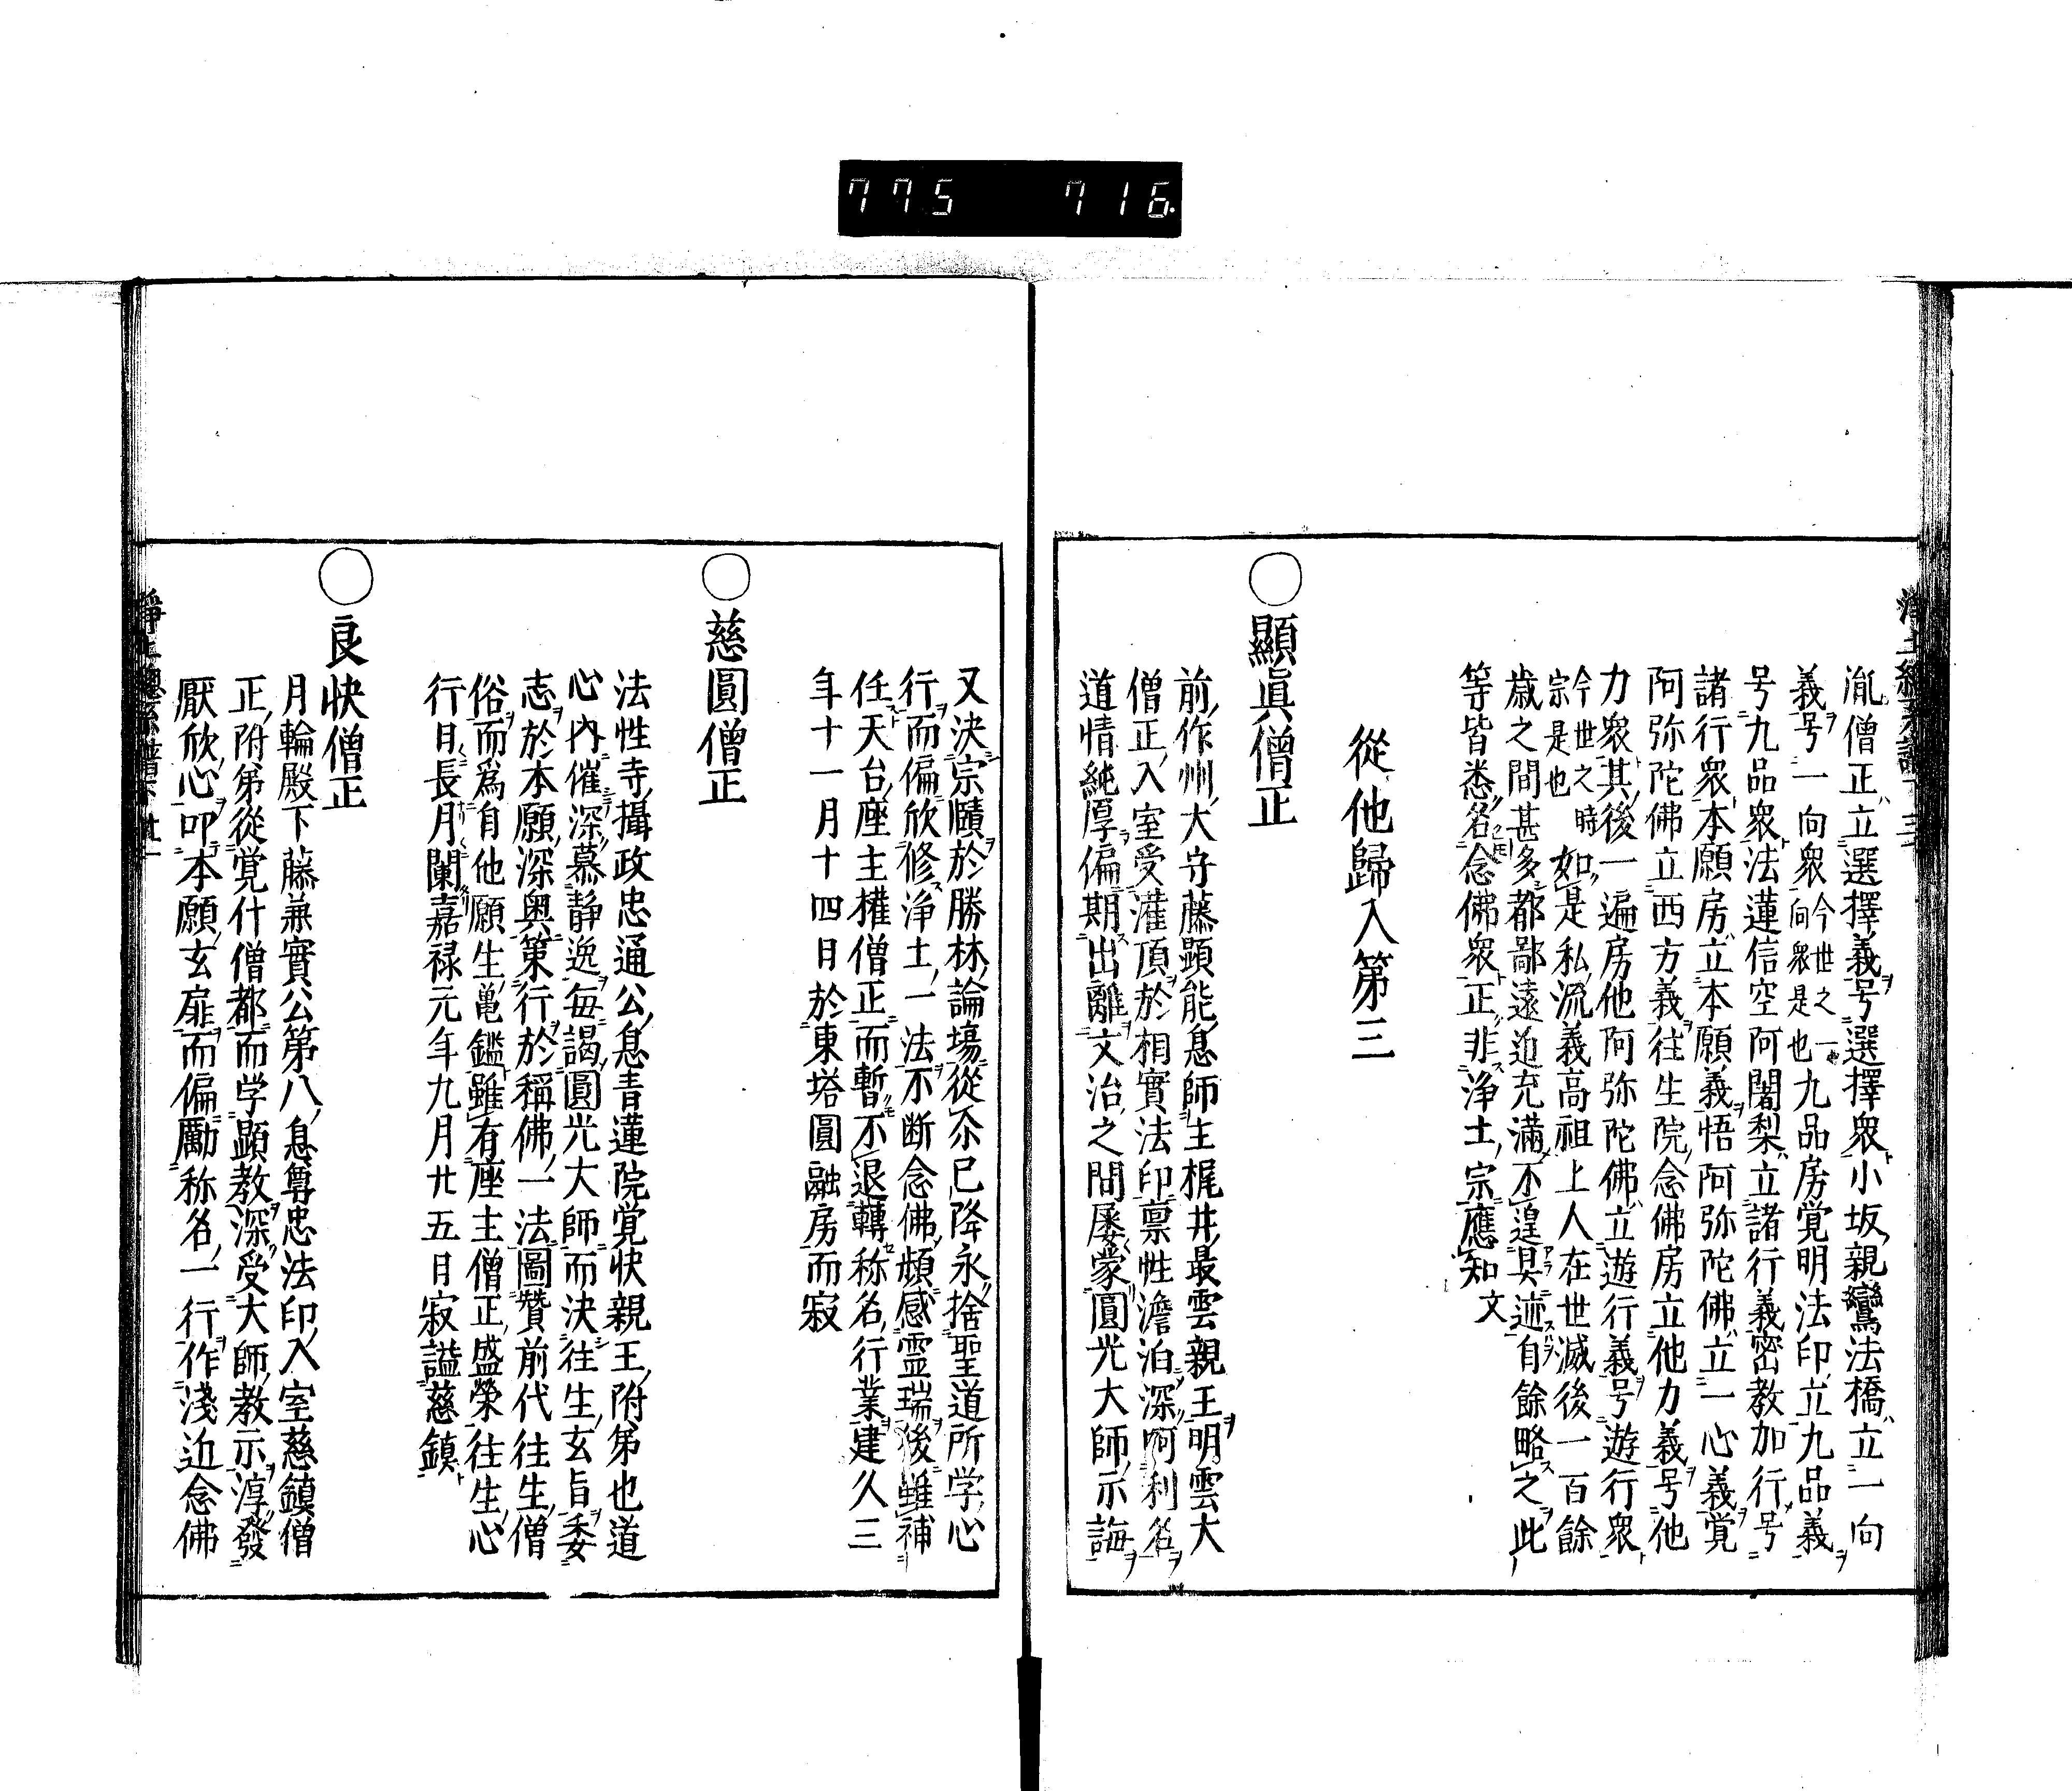 775 716
胤僧正立選擇義号選擇衆小坂親鸞法橋立一向
義号一向衆今世之一向衆是也九品房覚明法印立九品義
号九品衆法蓮信空阿闍梨立諸行義密教加行号
諸行衆本願房立本願義悟阿弥陀佛立一心義覚
阿弥陀佛立西方義往生院念佛房立他力義号他
力衆其後一遍房他阿弥陀佛立遊行義号遊行衆
今世之時宗是也如是私流義高祖上人在世滅後一百餘
歳之間甚多都鄙遠近充満不遑具迹自餘略之此
等皆悉名念佛衆正非浄土宗應知文
從他歸入第三
○顯眞僧正
前作州大守藤顕能息師主梶井最雲親王明雲大
僧正入室受灌頂於相實法印禀性澹泊深名利
道情純厚偏期出離文治之間屡蒙圓光大師示誨
又決宗賾於勝林論場從尓已降永捨聖道所学心
行而偏欣修浄土一法不断念佛頻感霊瑞後雖補
任天台座主權僧正而暫不退轉称名行業建久三
年十一月十四日於東塔圓融房而寂
○慈圓僧正
法性寺攝政忠通公息青蓮院覚快親王附弟也道
心内催深慕静逸毎謁圓光大師而決往生玄旨委
志於本願深奥策行於稱佛一法圖賛前代往生僧
俗而爲自他願生亀鑑雖有座主僧正盛榮往生心
行日長月闌嘉禄元年九月廿五日寂謚慈鎮
○良快僧正
月輪殿下藤兼實公第八息尊忠法印入室慈鎮僧
正附弟從覚什僧都而学顕教深受大師教示淳發
厭欣心叩本願玄扉而偏勵称名一行作淺近念佛